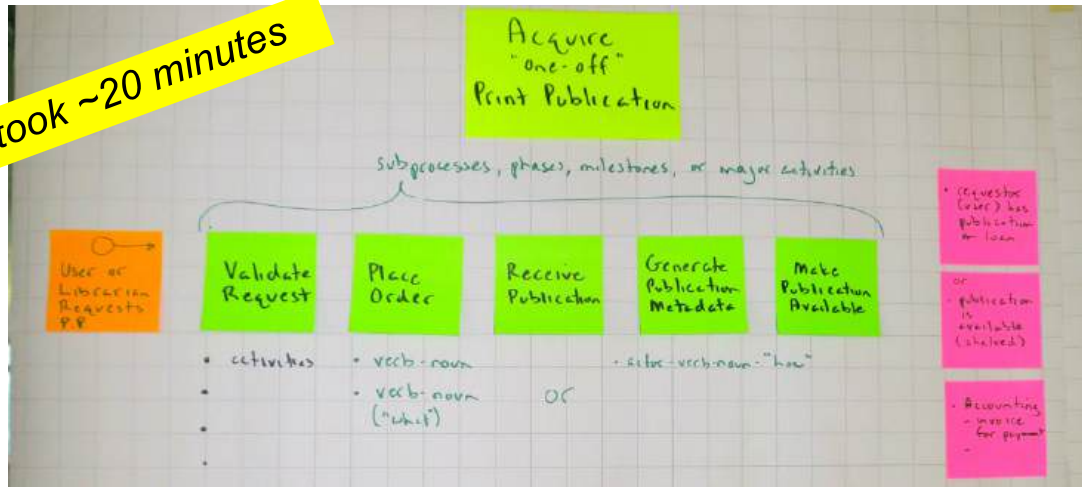 took ~20 minutes
Acquire
"one-off"
Print Publication
subprocesses, phases, milestones, or major activities
User or
Librarian
Requests
P.P.
Validate
Request
Place
Order
Receive
Publication
Generate
Publication
Metadata
Make
Publication
Available
• activities
• verb-noun
• verb-noun
("what")
or
• actor-verb-noun-"how"
• requestor
(user) has
publication
on loan
or
• publication
is
available
(shelved)
• Accounting
- invoice
for payment